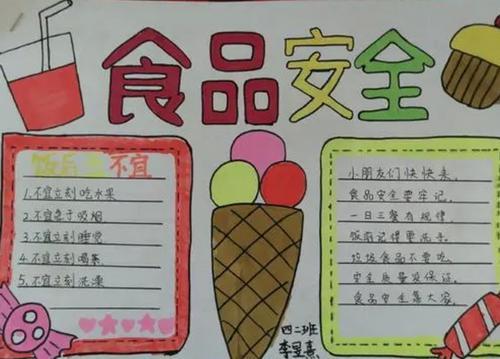 食品安全
饭后不宜
1.不宜立刻吃水果
2.不宜急于吸烟
3.不宜立刻睡觉
4.不宜立刻喝茶
5.不宜立刻洗澡
小朋友们快快来,
食品安全要牢记。
一日三餐有规律,
饭前记得要洗手。
垃圾食品不要吃,
安全质量没保证。
食品安全靠大家。
四二班
李昱